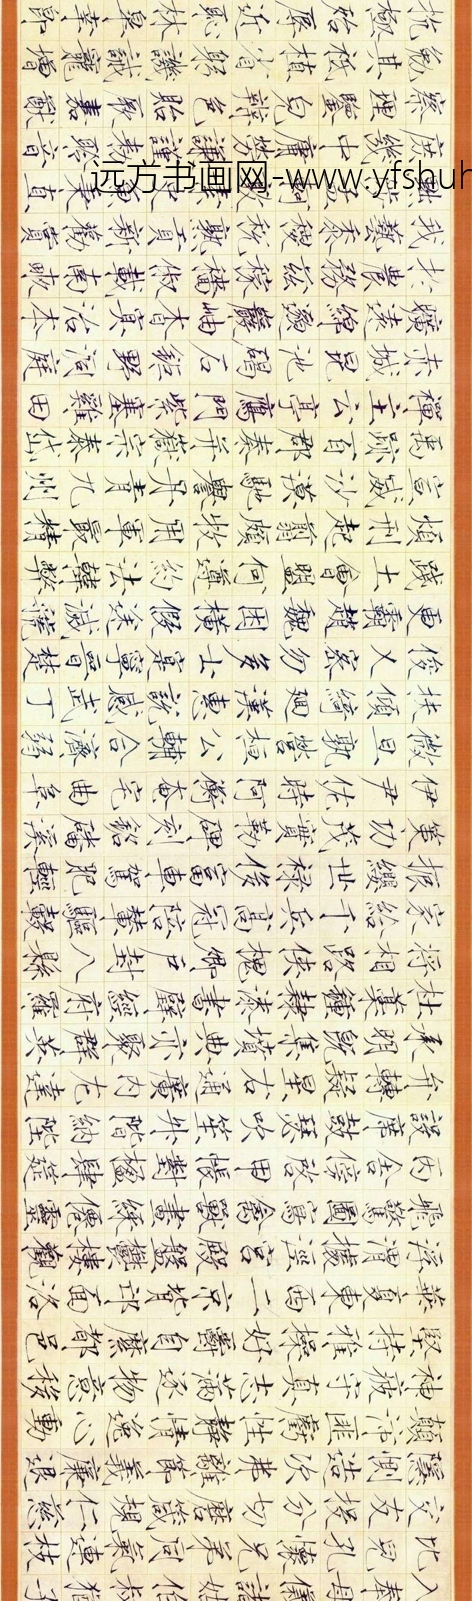 入奉母儀諸姑伯叔猶子
比兒孔懷兄弟同氣連枝
交友投分切磨箴規仁慈
隱惻造次弗離節義廉退
顛沛匪虧性靜情逸心動
神疲守真志滿逐物意移
堅持雅操好爵自縻都邑
華夏東西二京背邙面洛
浮渭據涇宮殿盤鬱樓觀
飛驚圖寫禽獸畫綵僊靈
丙舍傍啟甲帳對楹肆筵
設席鼓瑟吹笙升階納陛
弁轉疑星右通廣內左達
承明既集墳典亦聚群英
杜稾鍾隸漆書壁經府羅
將相路俠槐卿戶封八縣
家給千兵高冠陪輦驅轂
振纓世祿侈富車駕肥輕
策功茂實勒碑刻銘磻溪
伊尹佐時阿衡奄宅曲阜
微旦孰營桓公輔合濟弱
扶傾綺迴漢惠說感武丁
俊乂密勿多士寔寧晉楚
更霸趙魏困橫假途滅虢
踐土會盟何遵約法韓弊
煩刑起翦頗牧用軍最精
宣威沙漠馳譽丹青九州
禹跡百郡秦并嶽宗泰岱
禪主云亭鴈門紫塞雞田
赤城昆池碣石鉅野洞庭
曠遠綿邈巖岫杳冥治本
於農務茲稼穡俶載南畝
我藝黍稷稅熟貢新勸賞
秉直
庶幾中庸勞謙謹敕聆音
察理鑒皃辨色貽厥嘉猷
勉其祗植省躬譏誡寵增
抗極殆辱近恥林皋幸即
远方书画网-www.yfshuh